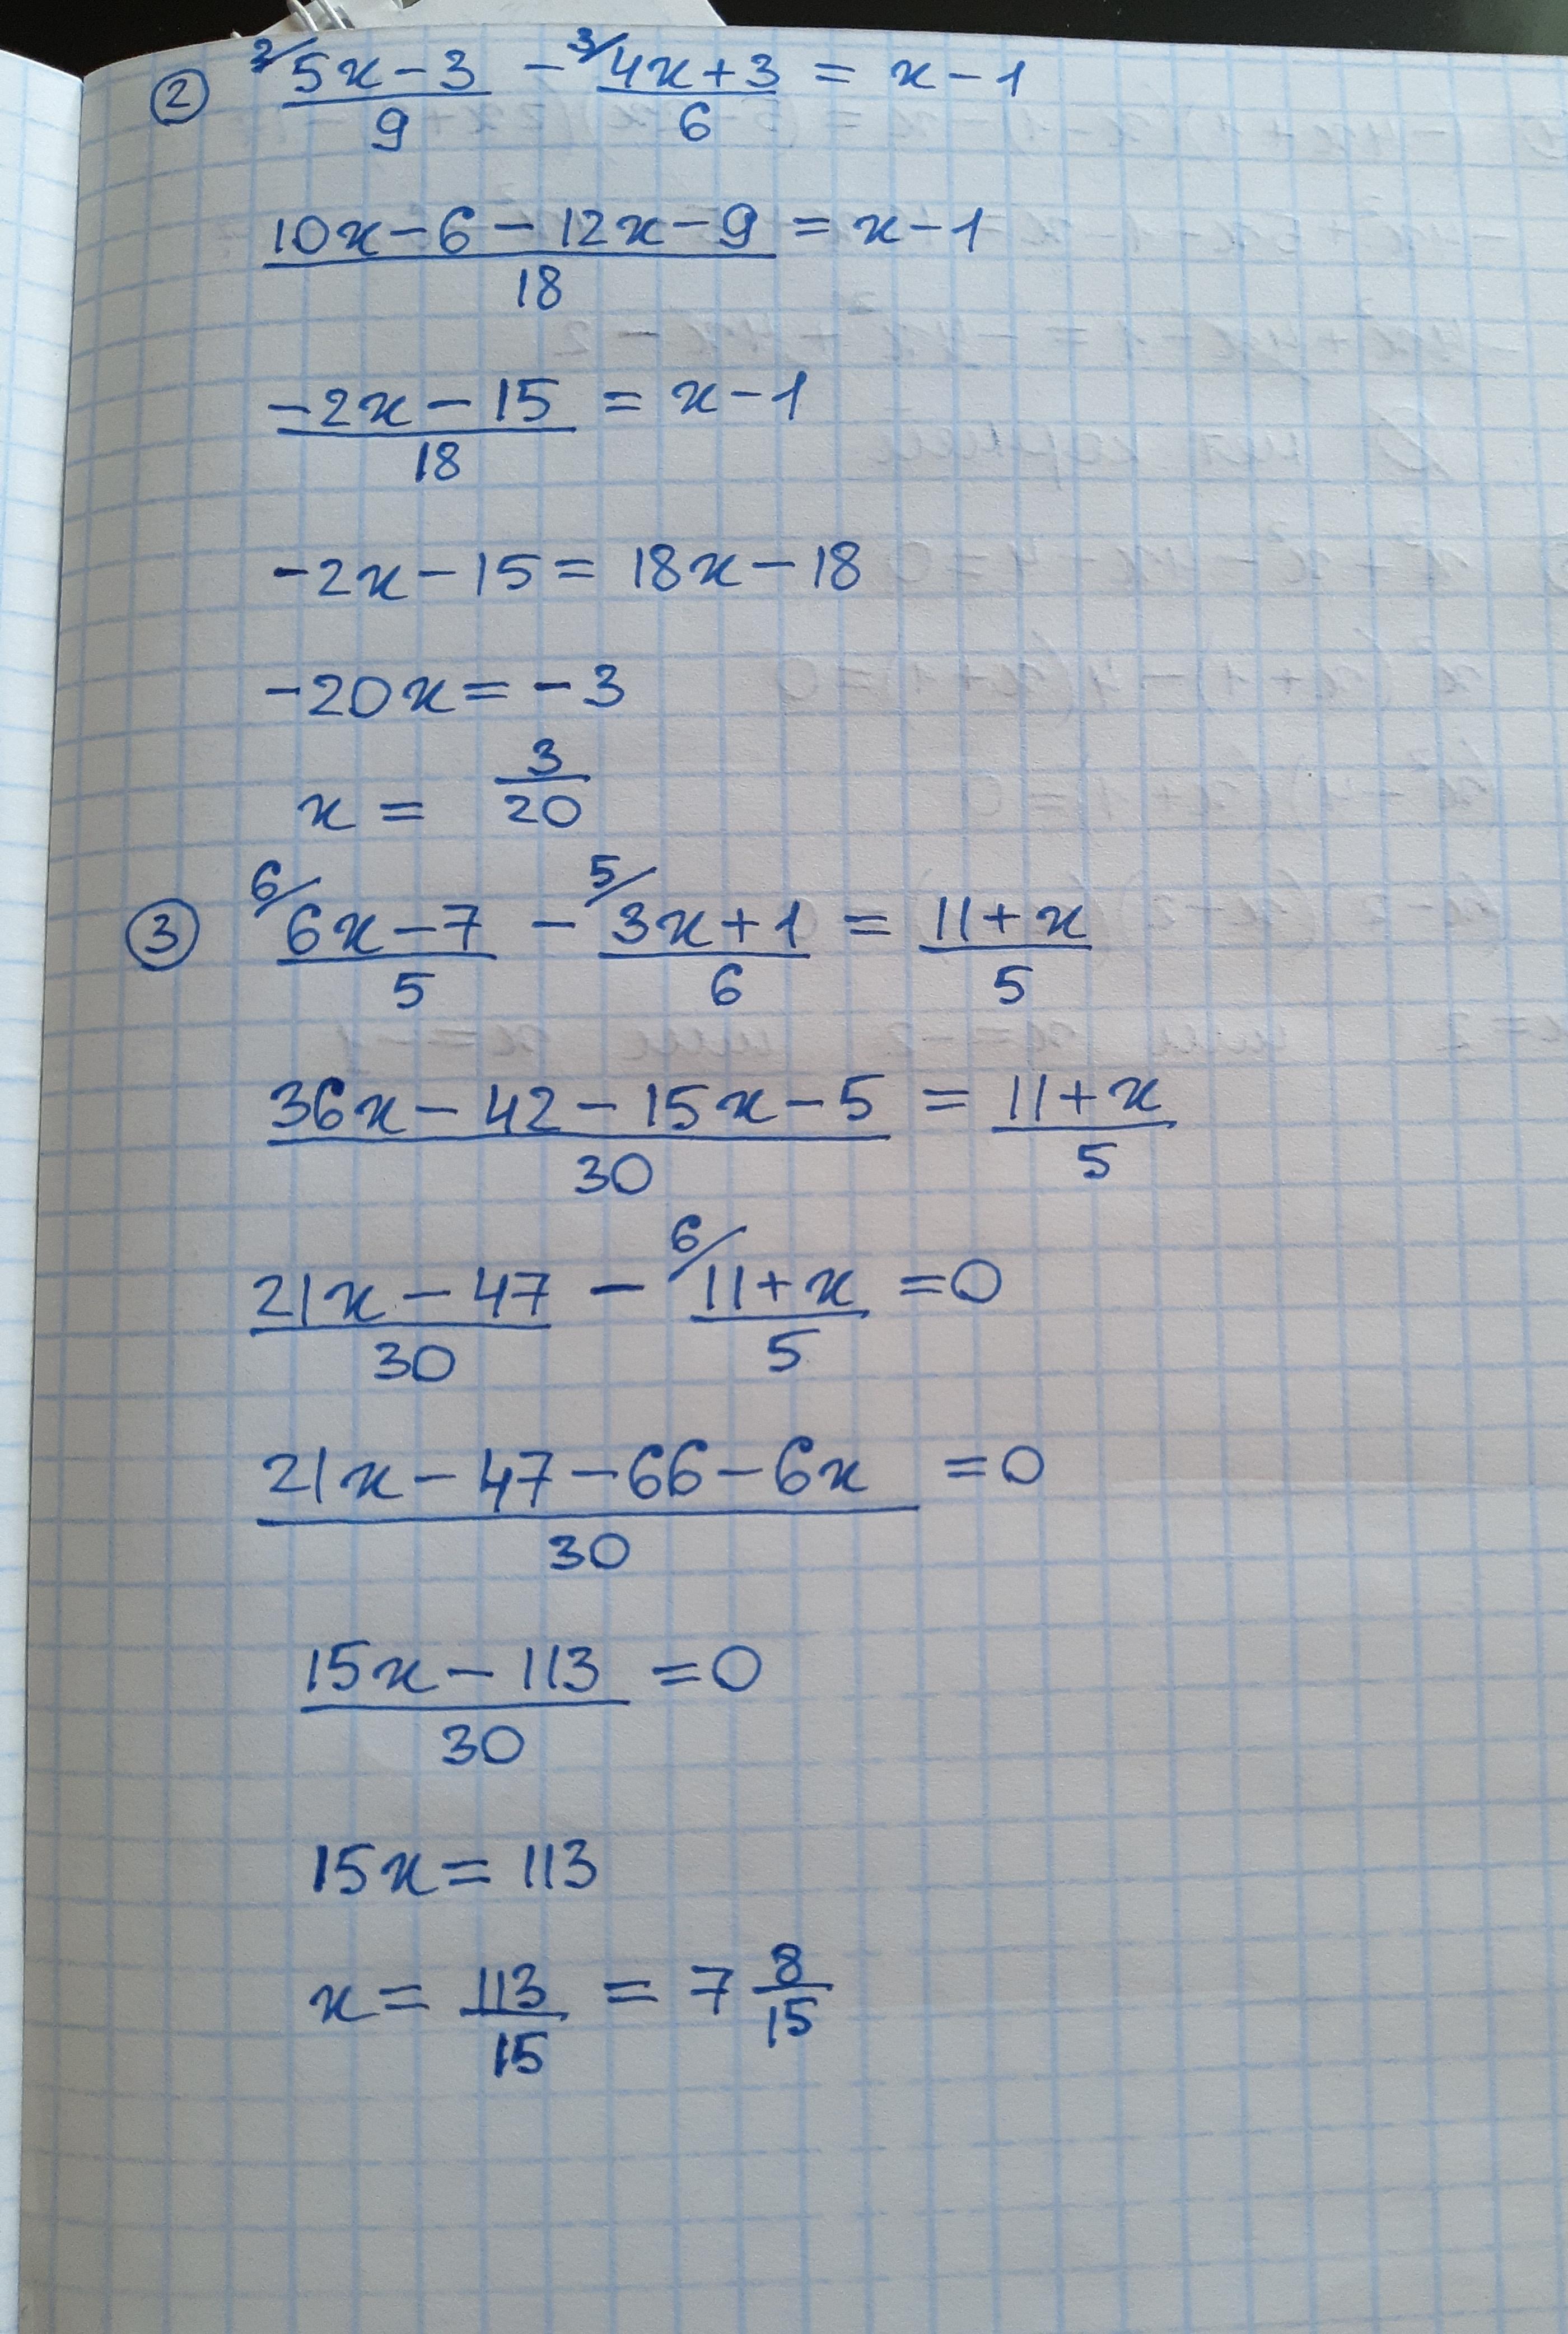 ② ²/ (5x-3)/9 - ³/ (4x+3)/6 = x-1
(10x-6-12x-9)/18 = x-1
(-2x-15)/18 = x-1
-2x-15 = 18x-18
-20x = -3
x = 3/20
③ ⁶/ (6x-7)/5 - ⁵/ (3x+1)/6 = (11+x)/5
(36x-42-15x-5)/30 = (11+x)/5
(21x-47)/30 - ⁶/ (11+x)/5 = 0
(21x-47-66-6x)/30 = 0
(15x-113)/30 = 0
15x = 113
x = 113/15 = 7 8/15